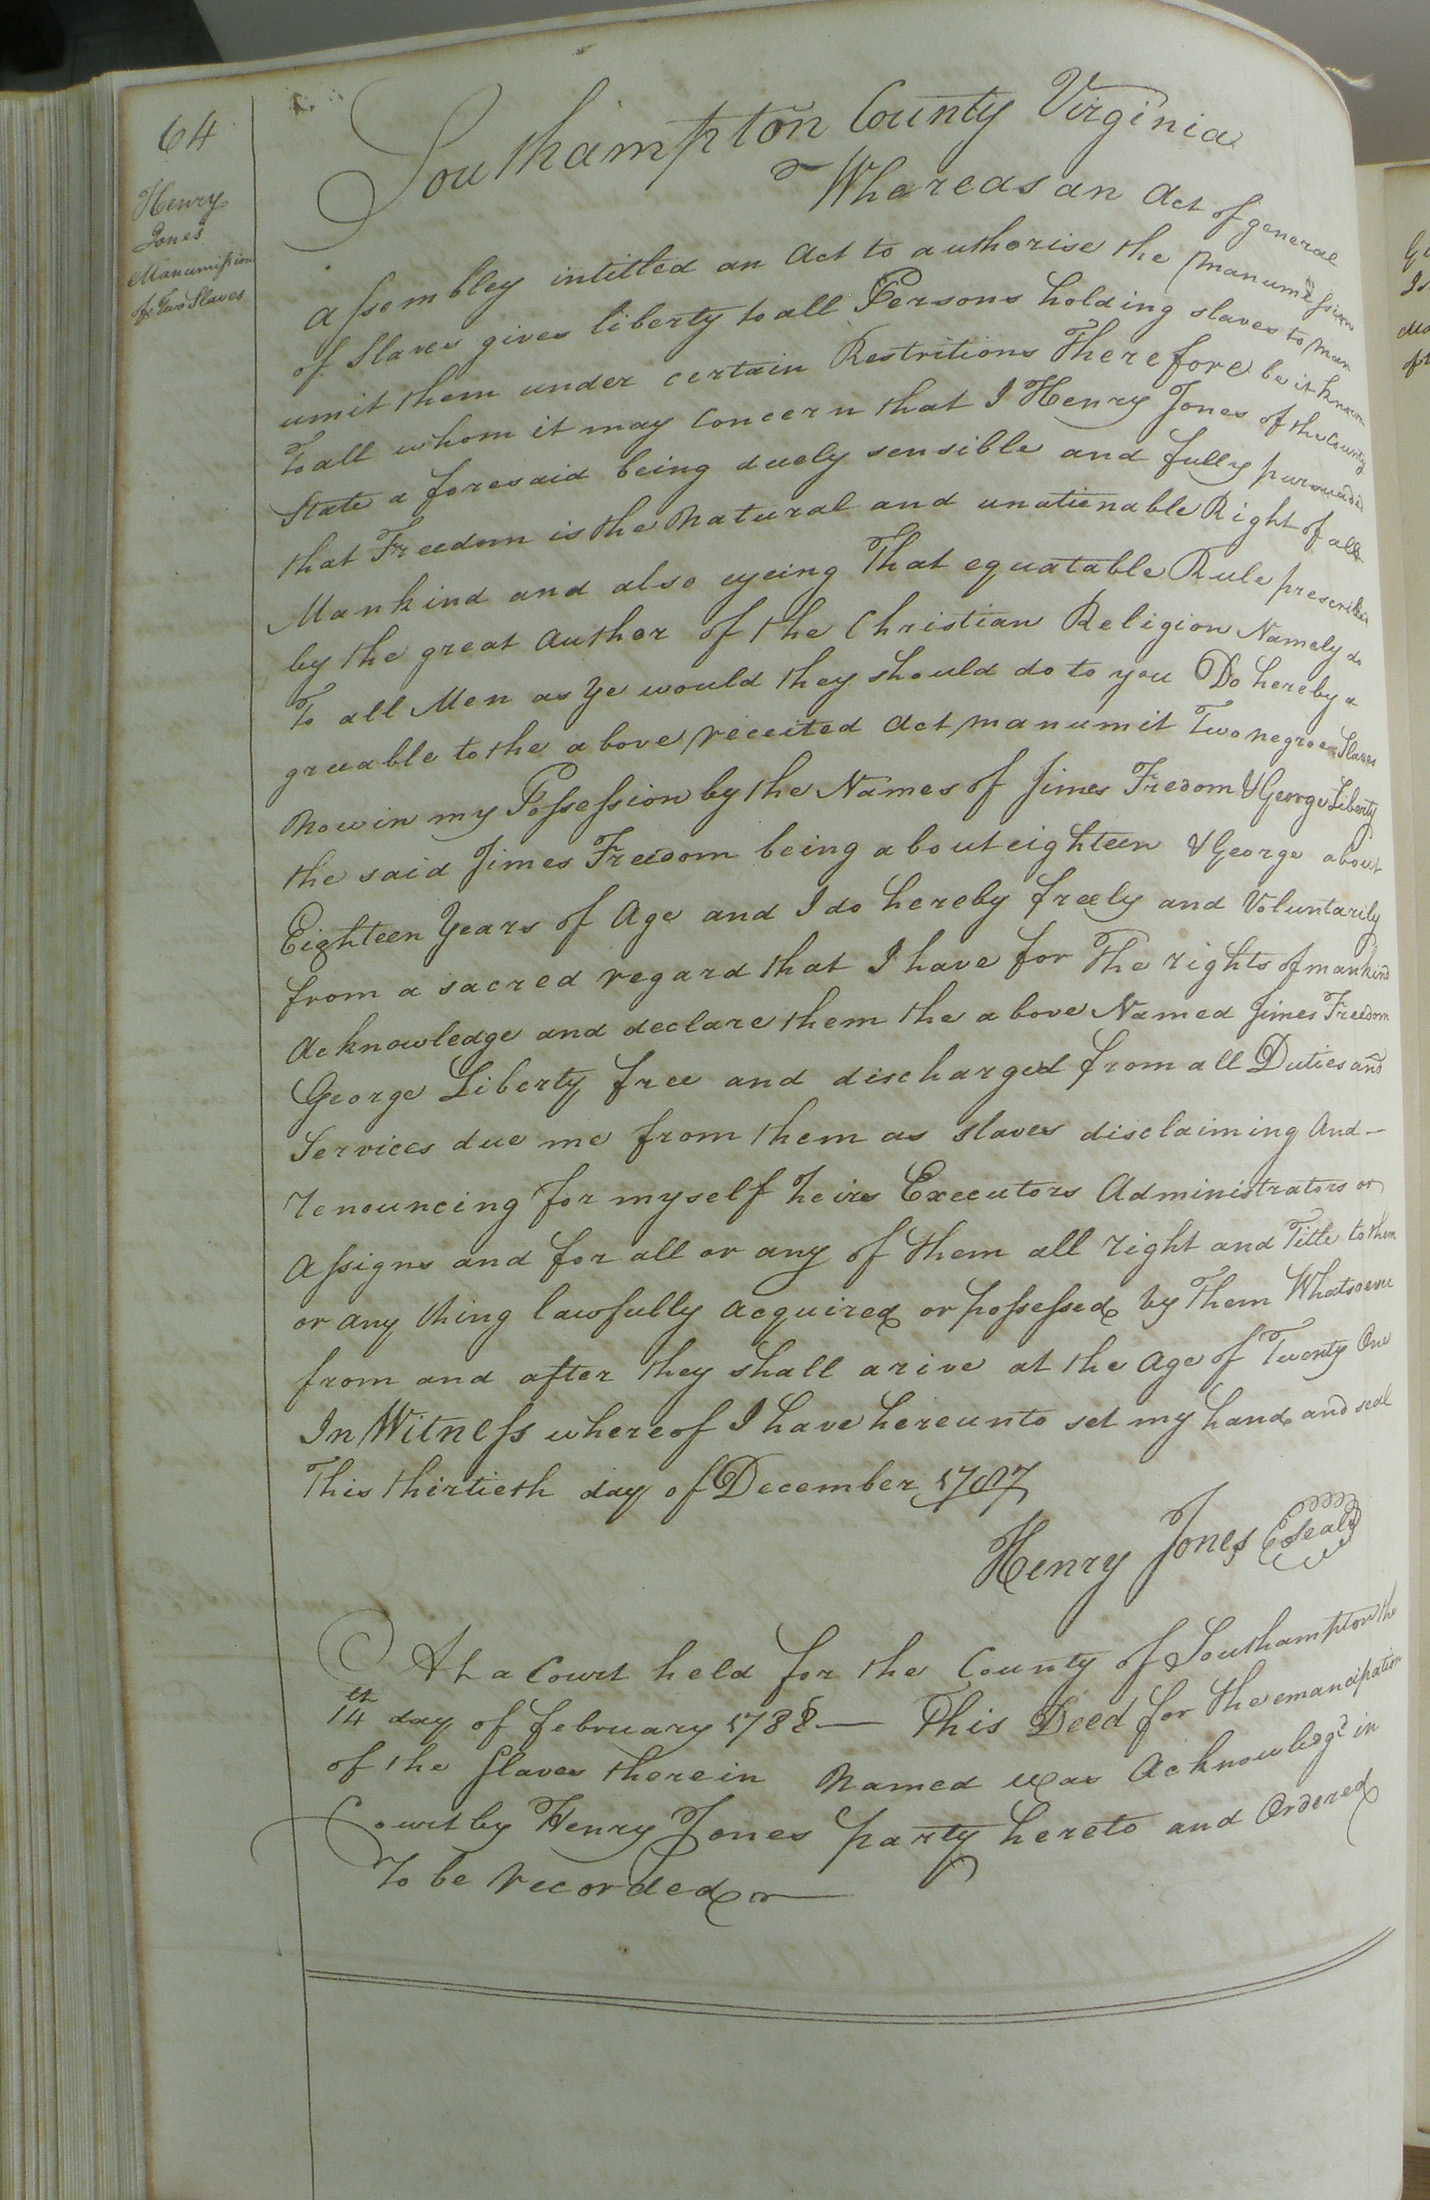 64
Henry
Jones
Manumission
of Two Slaves
Southampton County Virginia
Whereas an Act of general
assembley intitled an Act to authorise the Manumission
of Slaves gives liberty to all Persons holding slaves to Man
umit them under certain Restritions Therefore be it known
To all whom it may Concern that I Henry Jones of the County
State a foresaid being duely sensible and fully perswaded
that Freedom is the Natural and unatienable Right of all
Mankind and also eyeing That equatable Rule prescribed
by the great Auther of the Christian Religion Namely do
To all Men as Ye would they should do to you Do hereby a
greeable to the above receited Act manumit Two negroe Slaves
Now in my Possession by the Names of Jimes Fredom & George Liberty
the said Jimes Freedom being about eighteen & George about
Eighteen Years of Age and I do hereby freely and Voluntarily
from a sacred regard that I have for The rights of mankind
Acknowledge and declare them the above Named Jimes Freedom
George Liberty free and discharged from all Duties and
Services due me from them as slaves disclaiming And
renouncing for myself heirs Executors Administrators or
Assigns and for all or any of them all right and Title to them
or any thing lawfully acquired or possessed by Them Whatsoever
from and after they shall arive at the Age of Twenty One
In Witness whereof I have hereunto set my hand and seal
This thirtieth day of December 1787
Henry Jones Seal
At a Court held for the County of Southampton the
14th day of February 1788 — This Deed for the emancipation
of the Slaves therein Named was Acknowledgd in
Court by Henry Jones party hereto and Ordered
To be recorded